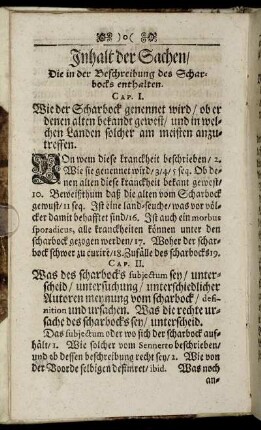 )o(
Inhalt der Sachen/
Die in der Beschreibung des Schar-
bocks enthalten.
CAP. I.
Wie der Scharbock genennet wird/ ob er
denen alten bekandt gewest/ und in wel-
chen Landen solcher am meisten anzu-
treffen.
VOn wem diese kranckheit beschrieben/ 2.
Wie sie genennet wird/ 3/4/5 seq. Ob de-
nen alten diese kranckheit bekant gewest/
10. Beweißthum daß die alten vom Scharbock
gewust/ 11 seq. Ist eine land-seuche/ was vor völ-
cker damit behafftet sind/16. Ist auch ein morbus
sporadicus, alle kranckheiten können unter den
scharbock gezogen werden/ 17. Woher der schar-
bock schwer zu curire/18. Zufälle des scharbocks 19.
CAP. II.
Was des scharbocks subjectum sey/ unter-
scheid/ untersuchung/ unterschiedlicher
Autoren meynung vom scharbock/ defi-
nition und ursachen. Was die rechte ur-
sache des scharbocks sey/ unterscheid.
Das subjectum oder wo sich der scharbock auf-
hält/ 1. Wie solcher vom Sennerto beschrieben/
und ob dessen beschreibung recht sey/ 2. Wie von
der Boorde selbigen definiret/ ibid. Was noch
an-